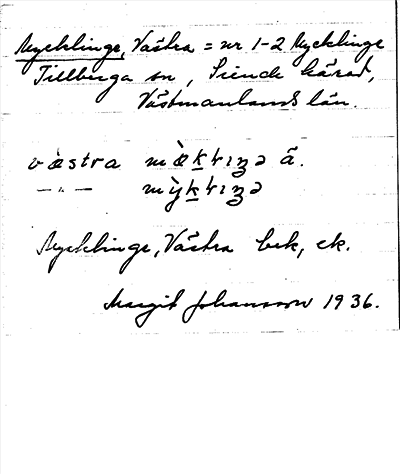 Mycklinge, Västra = nr 1-2 Mycklinge
Tillberga sn, Siende härad,
Västmanlands län.
væ̀stra mæ̀kḷıŋə ä.
— „ — mỳkḷıŋə
Mycklinge, Västra bek, ek.
Margit Johansson 1936.